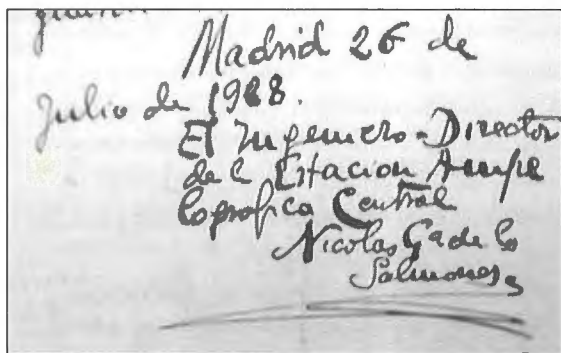 Madrid 26 de
Julio de 1928.
El Ingeniero-Director
de la Estacion Ampe
lografica Central
Nicolas Ga de los
Salmones